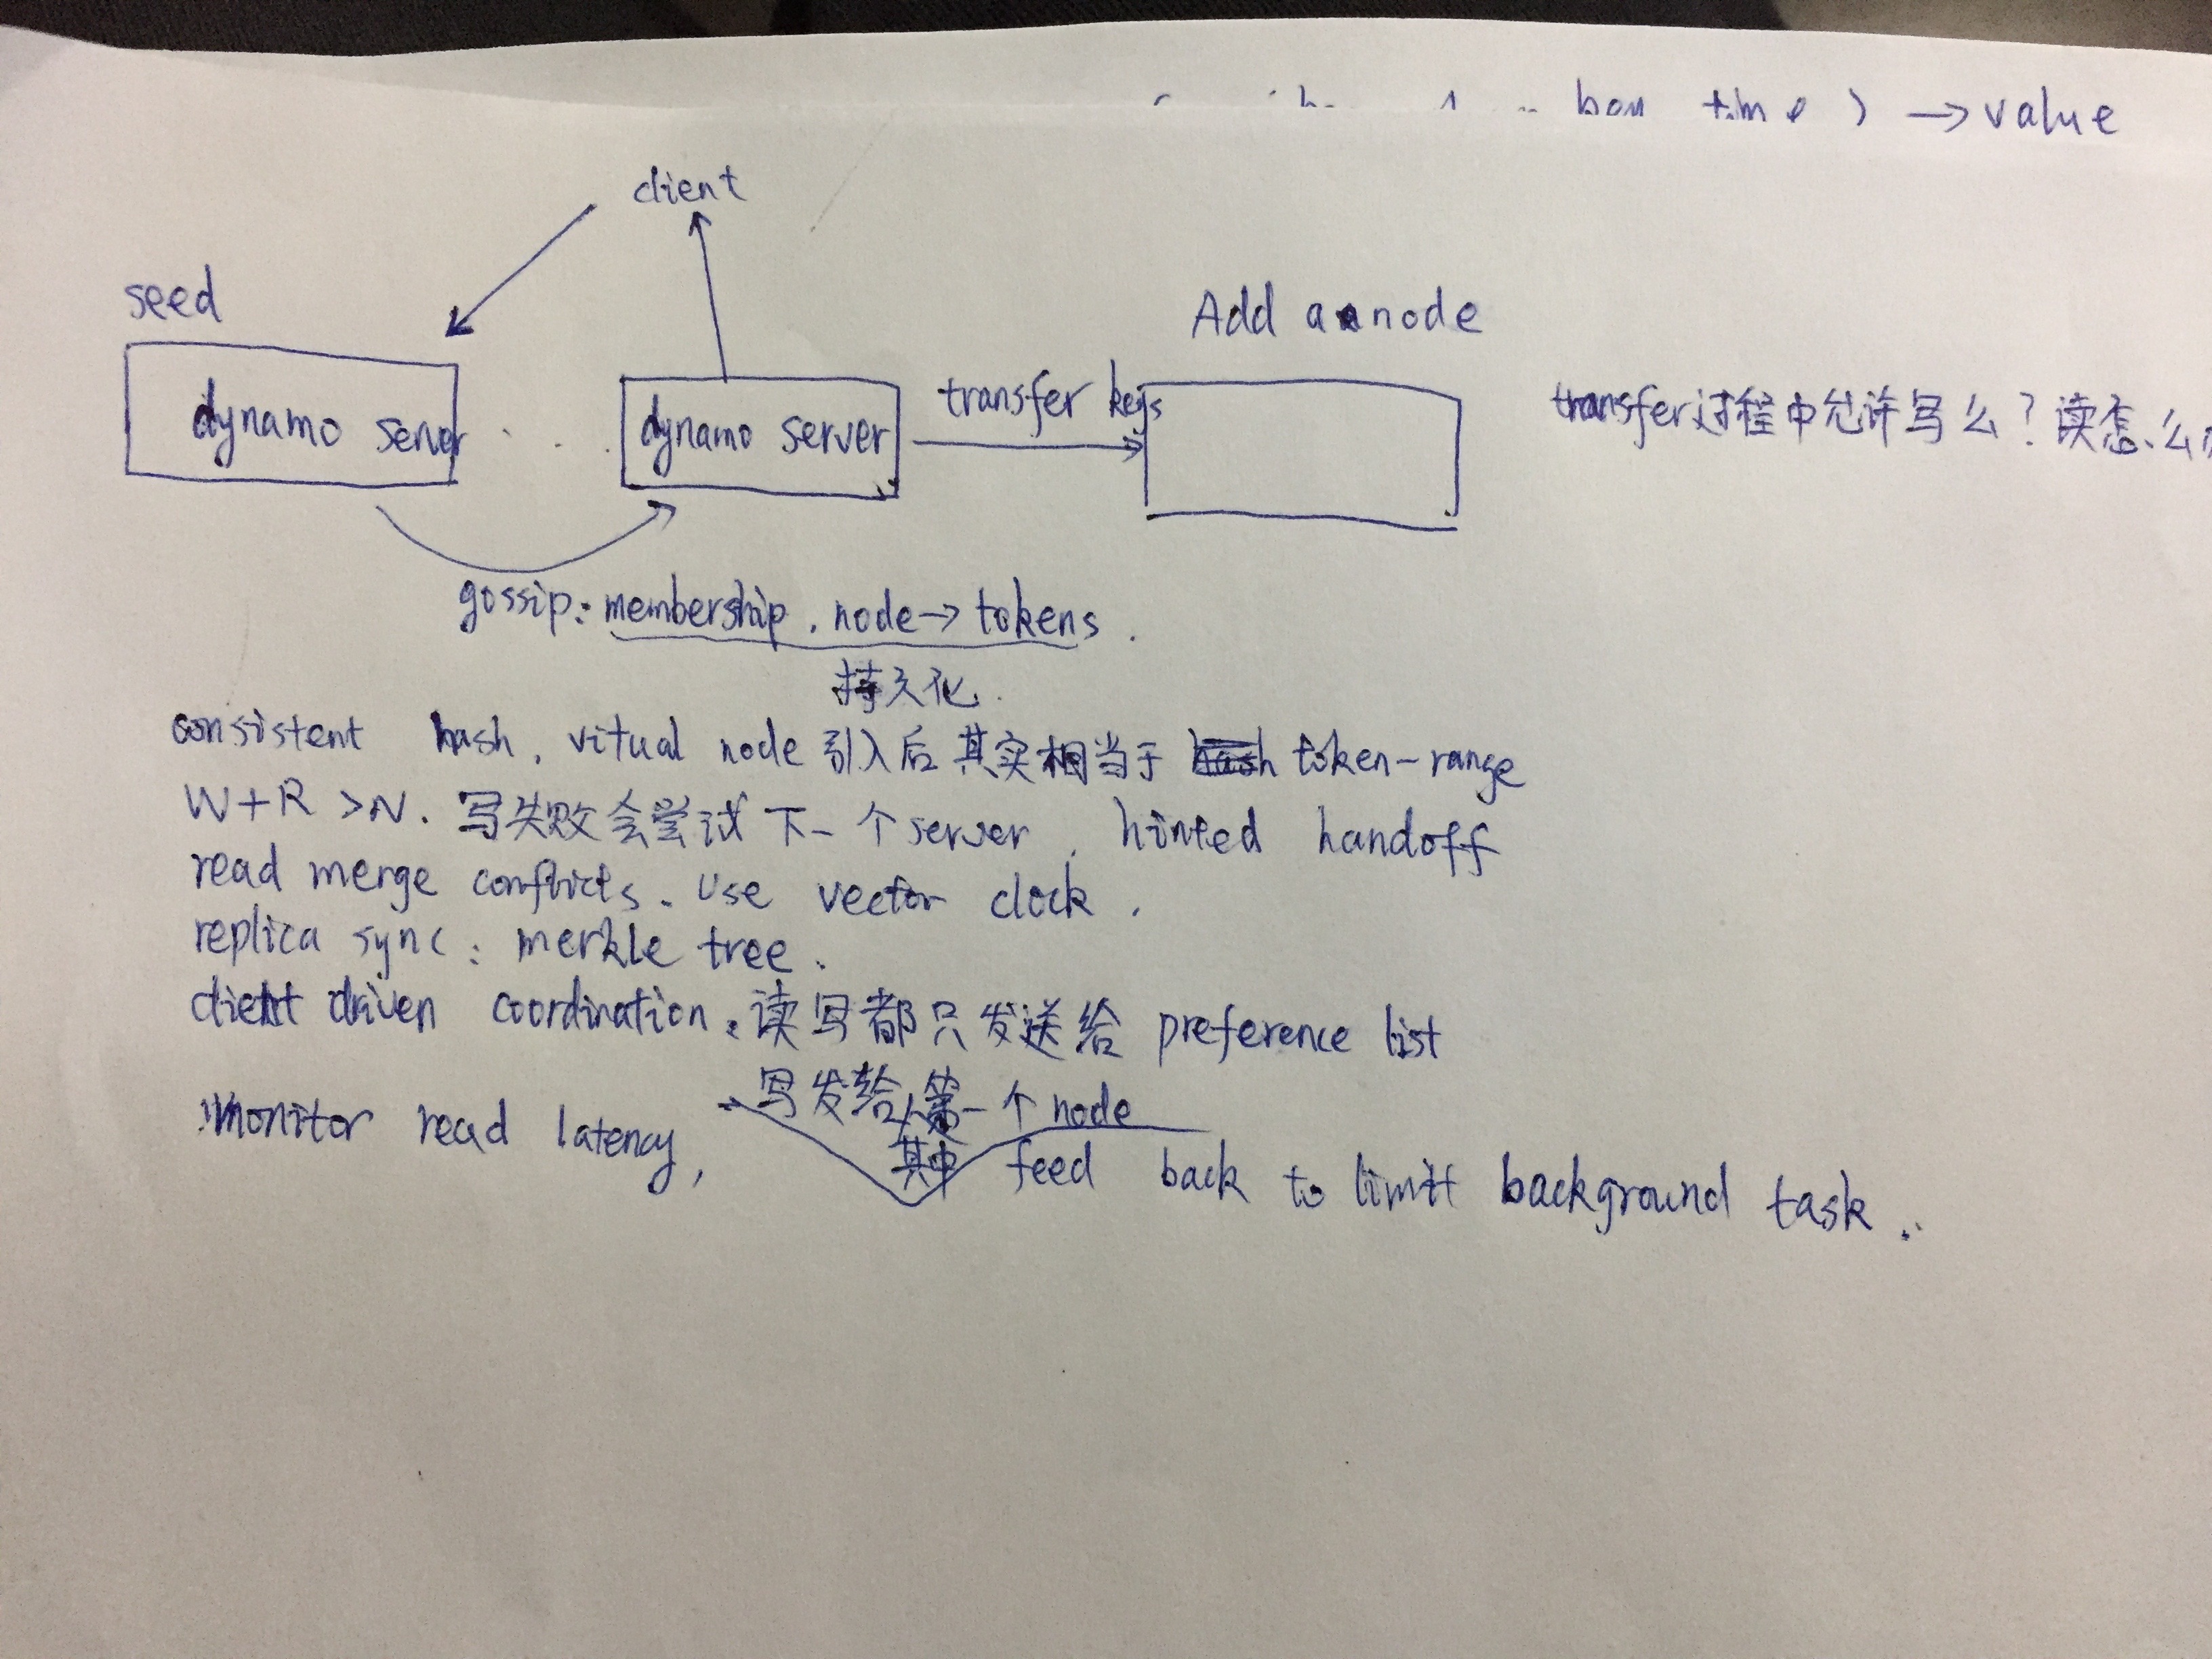 time ) → value
client
seed
Add a node
dynamo server
dynamo server
transfer keys
transfer过程中允许写么？读怎么
gossip: membership, node→ tokens.
持久化.
consistent hash, vitual node 引入后其实相当于 token-range
W+R >N. 写失败会尝试下一个server, hinted handoff
read merge conflicts. Use vector clock.
replica sync: merkle tree.
client driven coordination. 读写都只发送给 preference list
写发给其中第一个node
Monitor read latency, feed back to limit background task.